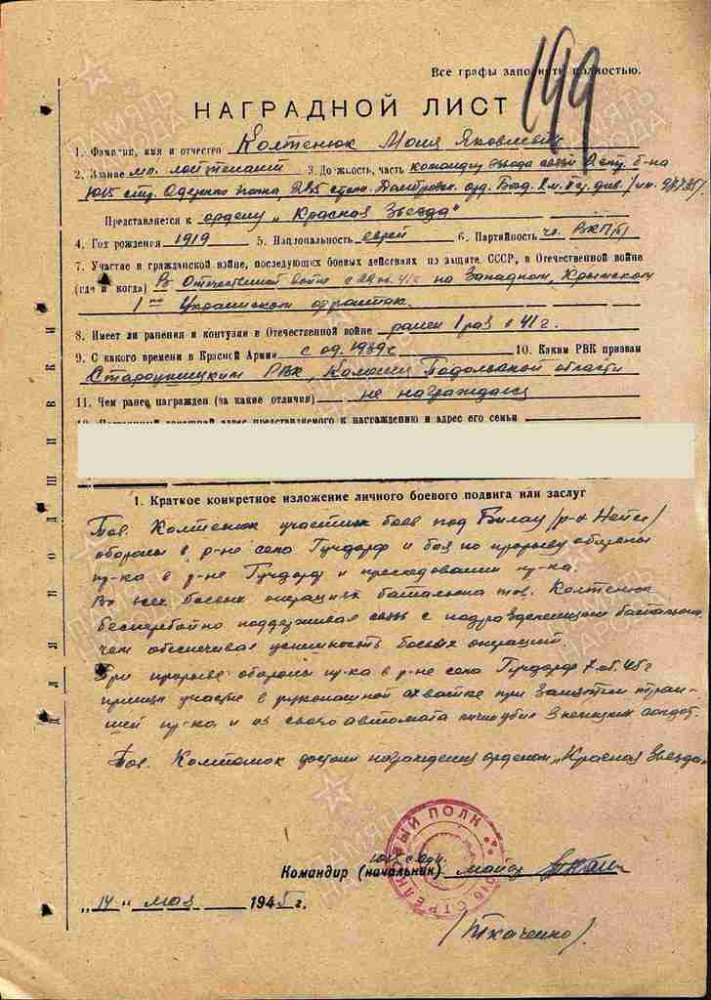 199
Все графы заполнять полностью.
НАГРАДНОЙ ЛИСТ
1. Фамилия, имя и отчество Колтенюк Моня Яковлевич
2. Звание мл. лейтенант 3. Должность, часть командир взвода связи
1015 стр. полка, 285 стрел.
Представляется к ордену „Красная Звезда"
4. Год рождения 1919 5. Национальность еврей 6. Партийность чл. ВКП/б/
7. Участие в гражданской войне, последующих боевых действиях по защите СССР, в Отечественной войне
(где и когда) В Отечественной войне с на Западном, Крымском
1ом Украинском фронтах.
8. Имеет ли ранения и контузии в Отечественной войне ранен 1 раз в 41 г.
9. С какого времени в Красной Армии с 1939 г 10. Каким РВК призван
Староушицким РВК, Каменец Подольской области
11. Чем ранее награжден (за какие отличия) не награждался
представляемого к награждению и адрес его семьи
1. Краткое конкретное изложение личного боевого подвига или заслуг
Тов. Колтенюк участник боев под Билау /р-н Нейсе/
обороны в р-не села Гучдорф и боя по прорыву обороны
пр-ка в р-не Гучдорф и преследовании пр-ка.
Во всех боевых операциях батальона тов. Колтенюк
бесперебойно поддерживал связь с подразделениями батальона,
чем обеспечивал успешность боевых операций.
При прорыве обороны пр-ка в р-не села Гучдорф 7.05.45 г
принял участие в рукопашной схватке при занятии тран-
шей пр-ка и из своего автомата лично убил 3 немецких солдат.
Тов. Колтенюк достоин награждения орденом „Красная Звезда"
СТРЕЛКОВЫЙ ПОЛК
1015
Командир (начальник) 1015 майор
„14" мая 1945 г.
/Ткаченко/
ДЛЯ ПОДШИВКИ
ПАМЯТЬ НАРОДА